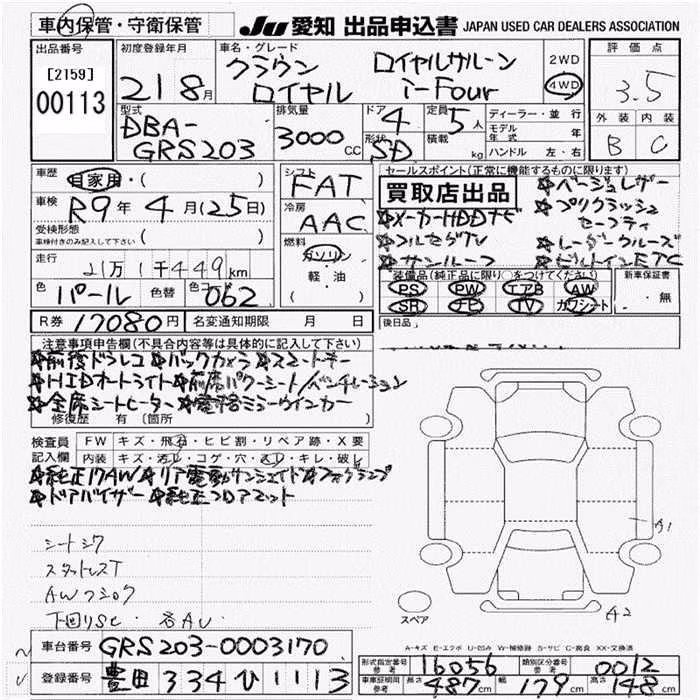 車内保管・守衛保管
JU 愛知 出品申込書 JAPAN USED CAR DEALERS ASSOCIATION
出品番号
[2159]
00113
初度登録年月
21 8月
車名・グレード
クラウン ロイヤルサルーン
ロイヤル i-Four
2WD
4WD
評価点
3.5
外装 内装
B C
型式
DBA-
GRS203
排気量
3000 CC
ドア 4
形状 SD
定員 5人
積載 kg
ディーラー・並行
モデル年式 年
ハンドル 左・右
車歴
自家用・( )
車検
R9年 4月(25日)
受検形態
車検付きのみ記入して下さい ( )
走行
21万1千449km
色 パール 色替 色コード 062
シフト
FAT
冷房
AAC
燃料
ガソリン
軽・油
( )
セールスポイント(正常に機能するものに限ります)
買取店出品
☆ベージュレザー
☆プリクラッシュ
セーフティ
☆メーカーHDDナビ
☆フルセグTV ☆レーダークルーズ
☆サンルーフ ☆ビルトインETC
装備品(純正品に限り○をつけてください)
PS PW エアB AW
SR ナビ TV カワシート
新車保証書
・無
後日品
R券 17080円 名変通知期限 月 日
注意事項申告欄(不具合内容等は具体的に記入して下さい)
☆前後ドラレコ☆バックカメラ☆スマートキー
☆HIDオートライト☆前席パワーシート/ベンチレーション
☆全席シートヒーター☆電格ミラーウインカー
修復歴 有〔箇所 〕
検査員記入欄
FW キズ・飛石・ヒビ割・リペア跡・X要
内装 キズ・汚レ・コゲ・穴・スレ・キレ・破レ
☆純正17AW☆リア電動サンシェイド☆フォグランプ
☆ドアバイザー☆純正フロアマット
シートシワ
スタッドレスT
AWフショク
下回りSC・各AU
A1
A2
スペア
A-キズ E-エクボ U-凹み W-補修跡 S-サビ C-腐食 XX-交換済
車台番号 GRS203-0003170
登録番号 豊田 334 ひ 1113
形式指定番号 参考 16056 類別区分番号 参考 0012
車車証明用 参考 長さ 487cm 幅 179cm 高さ 148cm